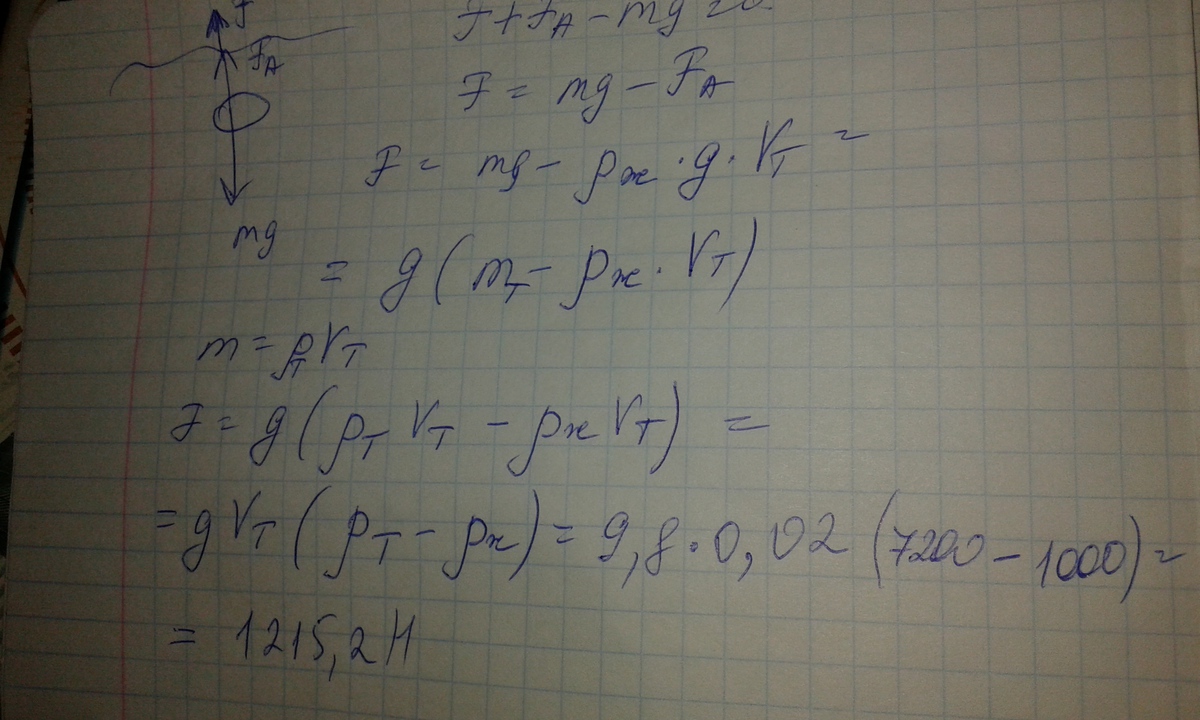 F
F_A
mg
F + F_A - mg = 0
F = mg - F_A
F = mg - ρж · g · V_T =
= g (m_T - ρж · V_T)
m = ρ_T V_T
F = g (ρ_T V_T - ρж V_T) =
= g V_T (ρ_T - ρж) = 9,8 · 0,02 (7200 - 1000) =
= 1215,2 Н